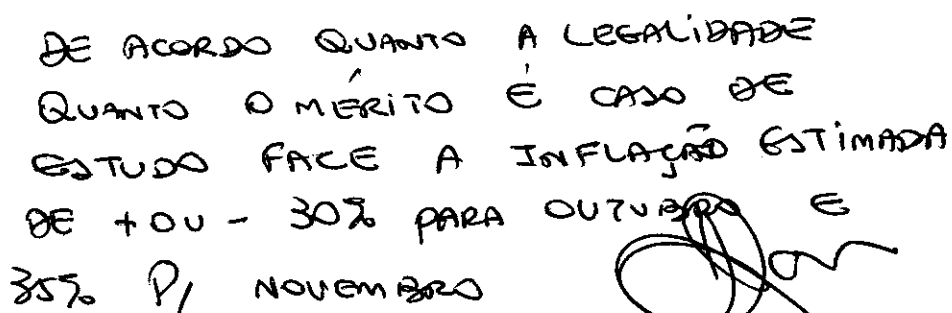 DE ACORDO QUANTO A LEGALIDADE
QUANTO O MÉRITO É CASO DE
ESTUDO FACE A INFLAÇÃO ESTIMADA
DE + OU - 30% PARA OUTUBRO E
35% P/ NOVEMBRO